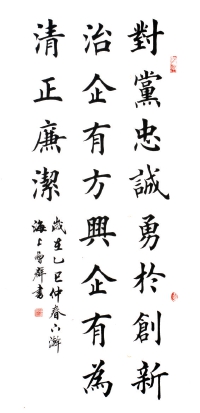 對黨忠誠勇於創新
治企有方興企有為
清正廉潔
歲在乙巳仲春下澣
海上曾群書